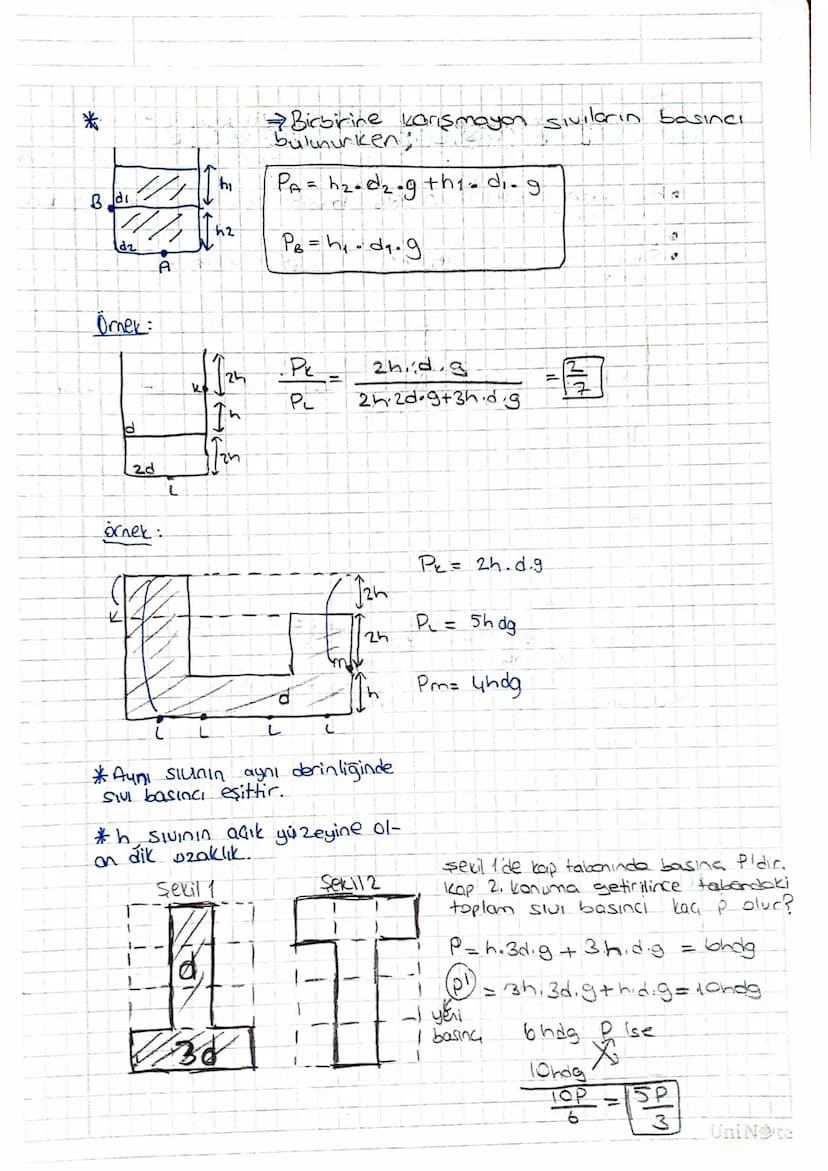 * ⇒ Birbirine karışmayan sıvıların basıncı
bulunurken;
h1
B d1
h2
d2
A
PA = h2.d2.g + h1.d1.g
PB = h1.d1.g
Örnek:
2h
K
h
d
2h
2d
L
PK/PL = 2h.d.g / 2h.2d.g+3h.d.g = 2/7
örnek:
K
2h
2h
m
h
d
L L L L
PK = 2h.d.g
PL = 5hdg
Pm= 4hdg
* Aynı sıvının aynı derinliğinde
sıvı basıncı eşittir.
* h, sıvının açık yüzeyine ol-
an dik uzaklık.
Şekil 1
Şekil 2
d
3d
Şekil 1'de kap tabanında basınç P'dir.
Kap 2. konuma getirilince tabandaki
toplam sıvı basıncı kaç P olur?
P = h.3d.g + 3.h.d.g = 6hdg
P' = 3h.3d.g+h.d.g = 10hdg
yeni
basınç
6hdg P ise
10hdg
10P/6 = 5P/3
UniNote